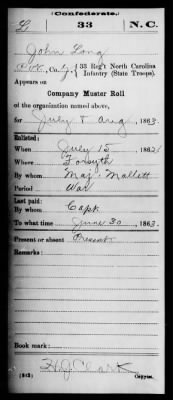 Confederate.
L 33 N.C.
John Long
Pvt, Co. I, 33 Reg't North Carolina
Infantry (State Troops)
Appears on
Company Muster Roll
of the organization named above,
for July & Aug, 1863.
Enlisted:
When July 15, 1862
Where Forsyth
By whom Maj. Mallett
Period War
Last paid:
By whom Capt.
To what time June 30, 1863.
Present or absent Present
Remarks:
Book mark:
H.J. Clark
(642) Copyist.